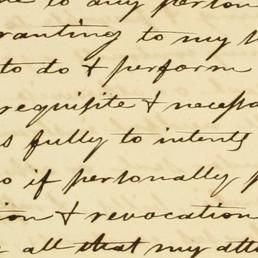 to any person
ranting to my
to do & perform
requisite & necessa
s fully to intents
o if personally p
ion & revocation
all that my atto